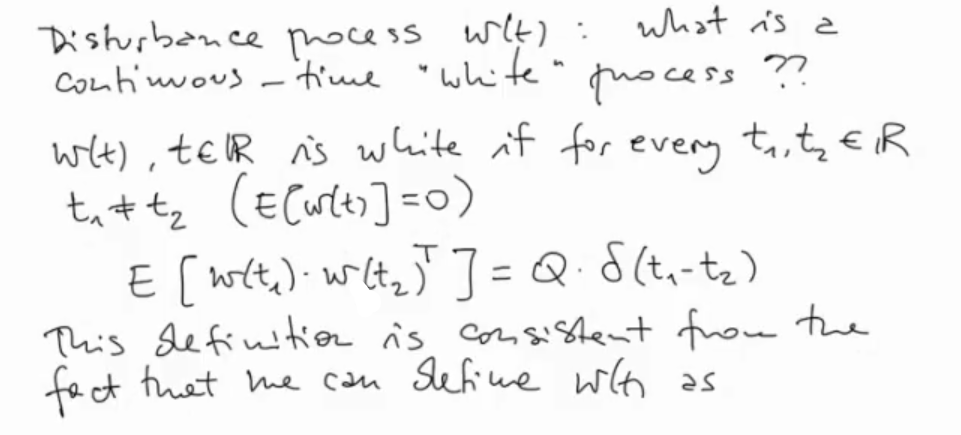 Disturbance process w(t) : what is a
continuous-time "white" process ??
w(t), t∈ℝ is white if for every t₁,t₂ ∈ ℝ
t₁≠t₂ (E[w(t)]=0)
E [ w(t₁)·w(t₂)ᵀ ] = Q·δ(t₁-t₂)
This definition is consistent from the
fact that we can define w(t) as